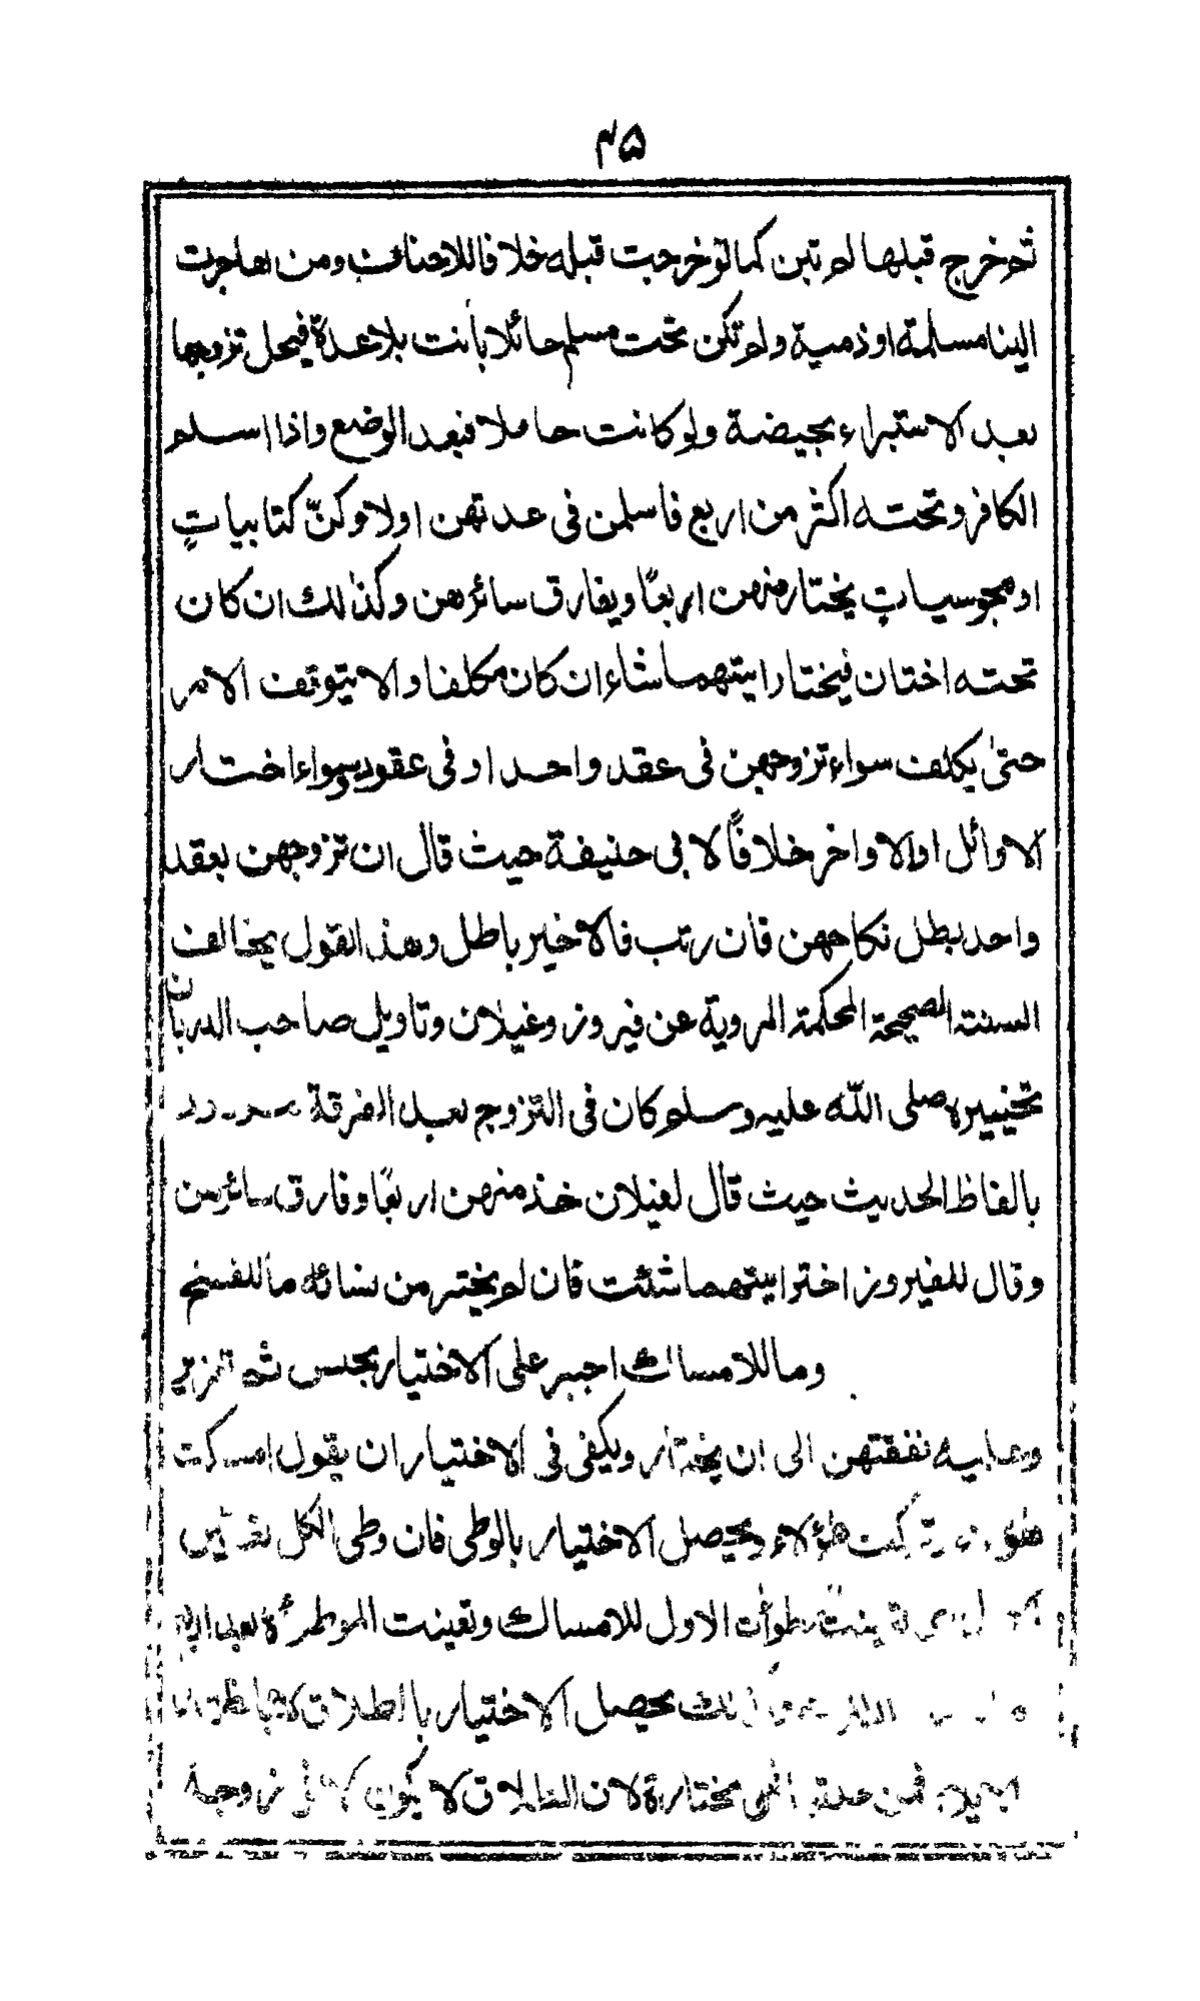 ۴۵
ثم خرج قبلها لم تبن كما لو خرجت قبله خلافا للاحناف ومن هاجرت
الينا مسلمة او ذمية ولم تكن تحت مسلم حائلا بأنت بلا عدة فيحل تزوجها
بعد الاستبراء بحيضة ولو كانت حاملا فبعد الوضع واذا اسلم
الكافر وتحته اكثر من اربع فاسلمن فى عدتهن اولا وكنّ كتابياتٍ
او مجوسياتٍ يختار منهن اربعًا ويفارق سائرهن وكذلك ان كان
تحته اختان فيختار ايتهما شاء ان كان مكلفا والا يتوقف الامر
حتىٰ يكلف سواء تزوجهن فى عقد واحد او فى عقود سواء اختار
الاوائل او الاواخر خلافًا لابى حنيفة حيث قال ان تزوجهن بعقد
واحد بطل نكاحهن فان رتب فالاخير باطل وهذا القول يخالف
السنة الصحيحة المحكمة المروية عن فيروز وغيلان وتاويل صاحب البربان
تخييره صلى الله عليه وسلم كان فى التزوج بعد الفرقة
بالفاظ الحديث حيث قال لغيلان خذ منهن اربعًا وفارق سائرهن
وقال للفيروز اختر ايتهما شئت فان لم يختر من نسائه ما للفسخ
وما للامساك اجبر على الاختيار بحبس ثم تعزير
وعليه نفقتهن الى ان يختار ويكفى فى الاختيار ان يقول امسكت
تركت هٰؤلاء ويحصل الاختيار بالوطى فان وطى الكل
الاول للامساك وتعينت الموطوءة بعد
يحصل الاختيار بالطلاق
فمن مختارة لان الطلاق لا يكون زوجة